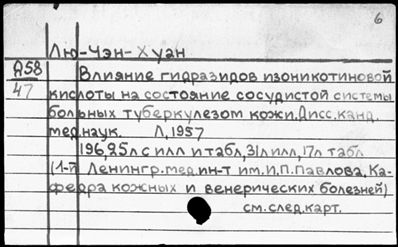 6
Лю-Чэн-Хуан
Д58
47
Влияние гидразидов изоникотиновой
кислоты на состояние сосудистой системы
больных туберкулезом кожи. Дисс. канд.
мед. наук. Л, 1957
196, 25л с илл и табл, 31л илл, 17л табл
(1-й Ленингр. мед. ин-т им. И.П. Павлова, Ка-
федра кожных и венерических болезней)
см. след. карт.